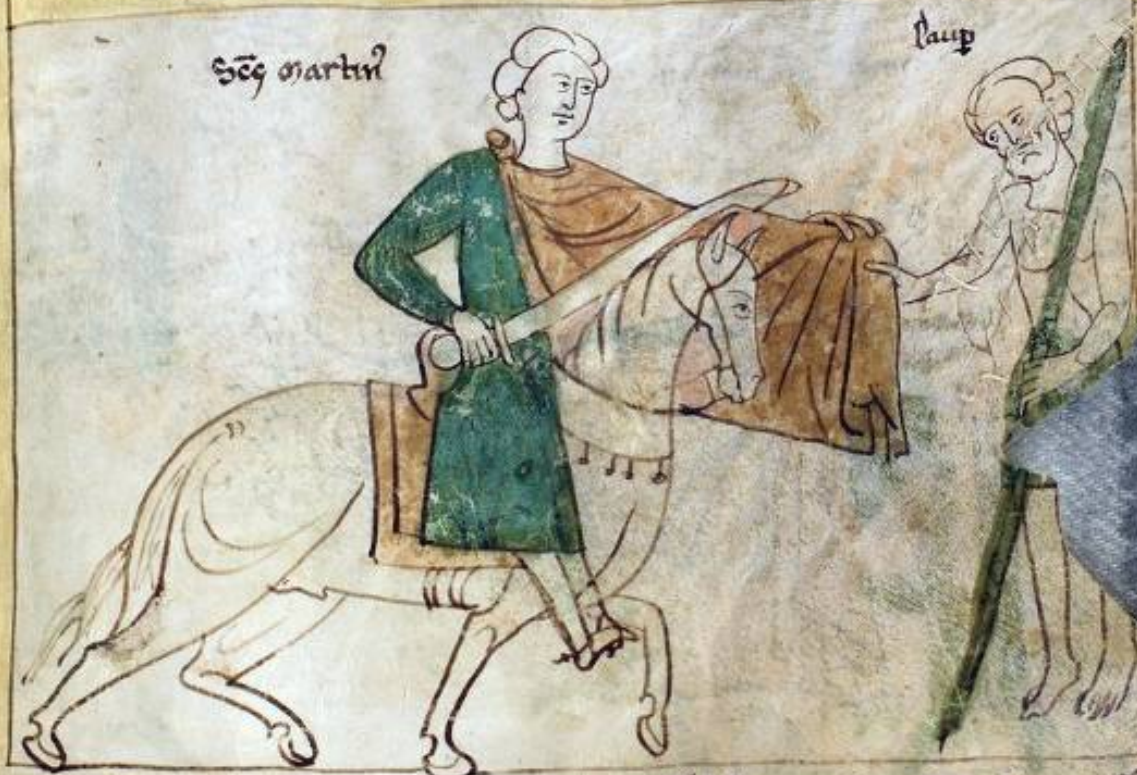 Scs martin'
paup